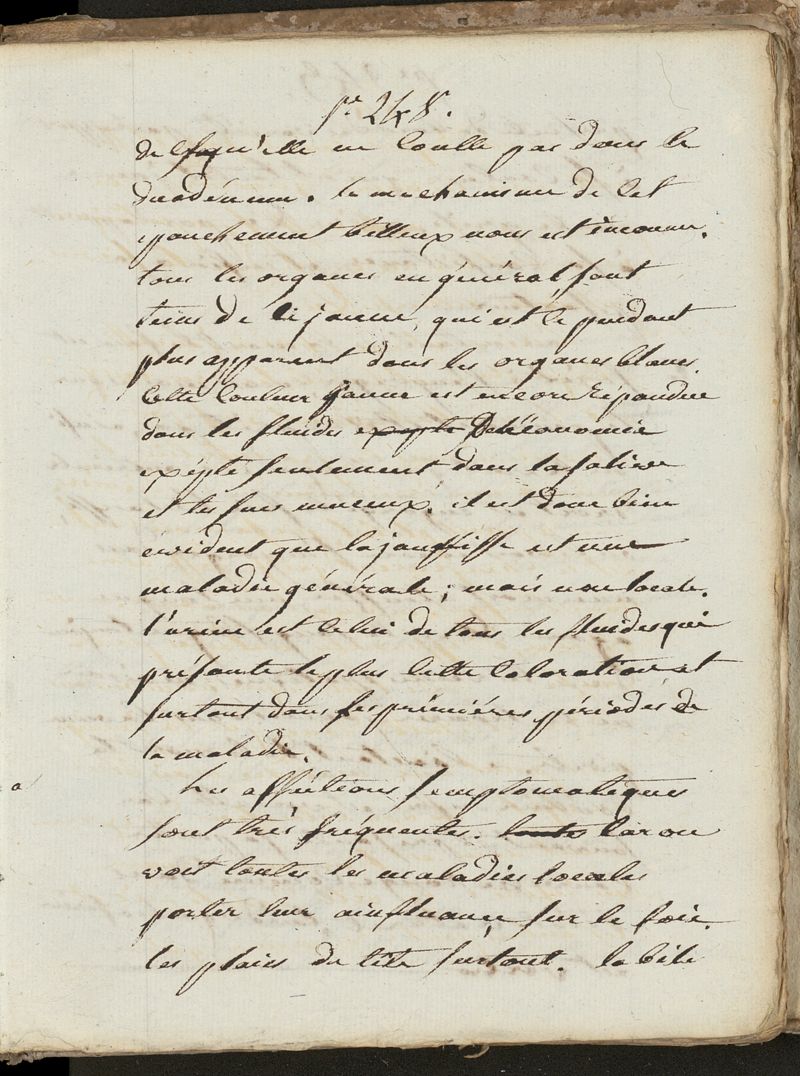 248.
de qu'elle ne coulle pas dans le
duodénum. le mechanisme de cet
epanchement billeux nous est inconnu.
tous les organes en général sont
teins de ce jaune, qui est cependant
plus apparent dans les organes blancs.
Cette couleur jaune est encore répandue
dans les fluides exepte De l'économie
exépté seulement dans la salive
et les sucs muceux. il est donc bien
évident que la jaunisse est une
maladie générale; mais non locale.
l'urine est celui de tous les fluides qui
présente le plus cette coloration et
surtout dans les prémiéres périodes de
la maladie.
Les afféctions semptomatiques
sont très fréquentes. toutes Car on
voit toutes les maladies locales
porter leur ainfluance sur le foie.
les plaies de tête surtout. la bile